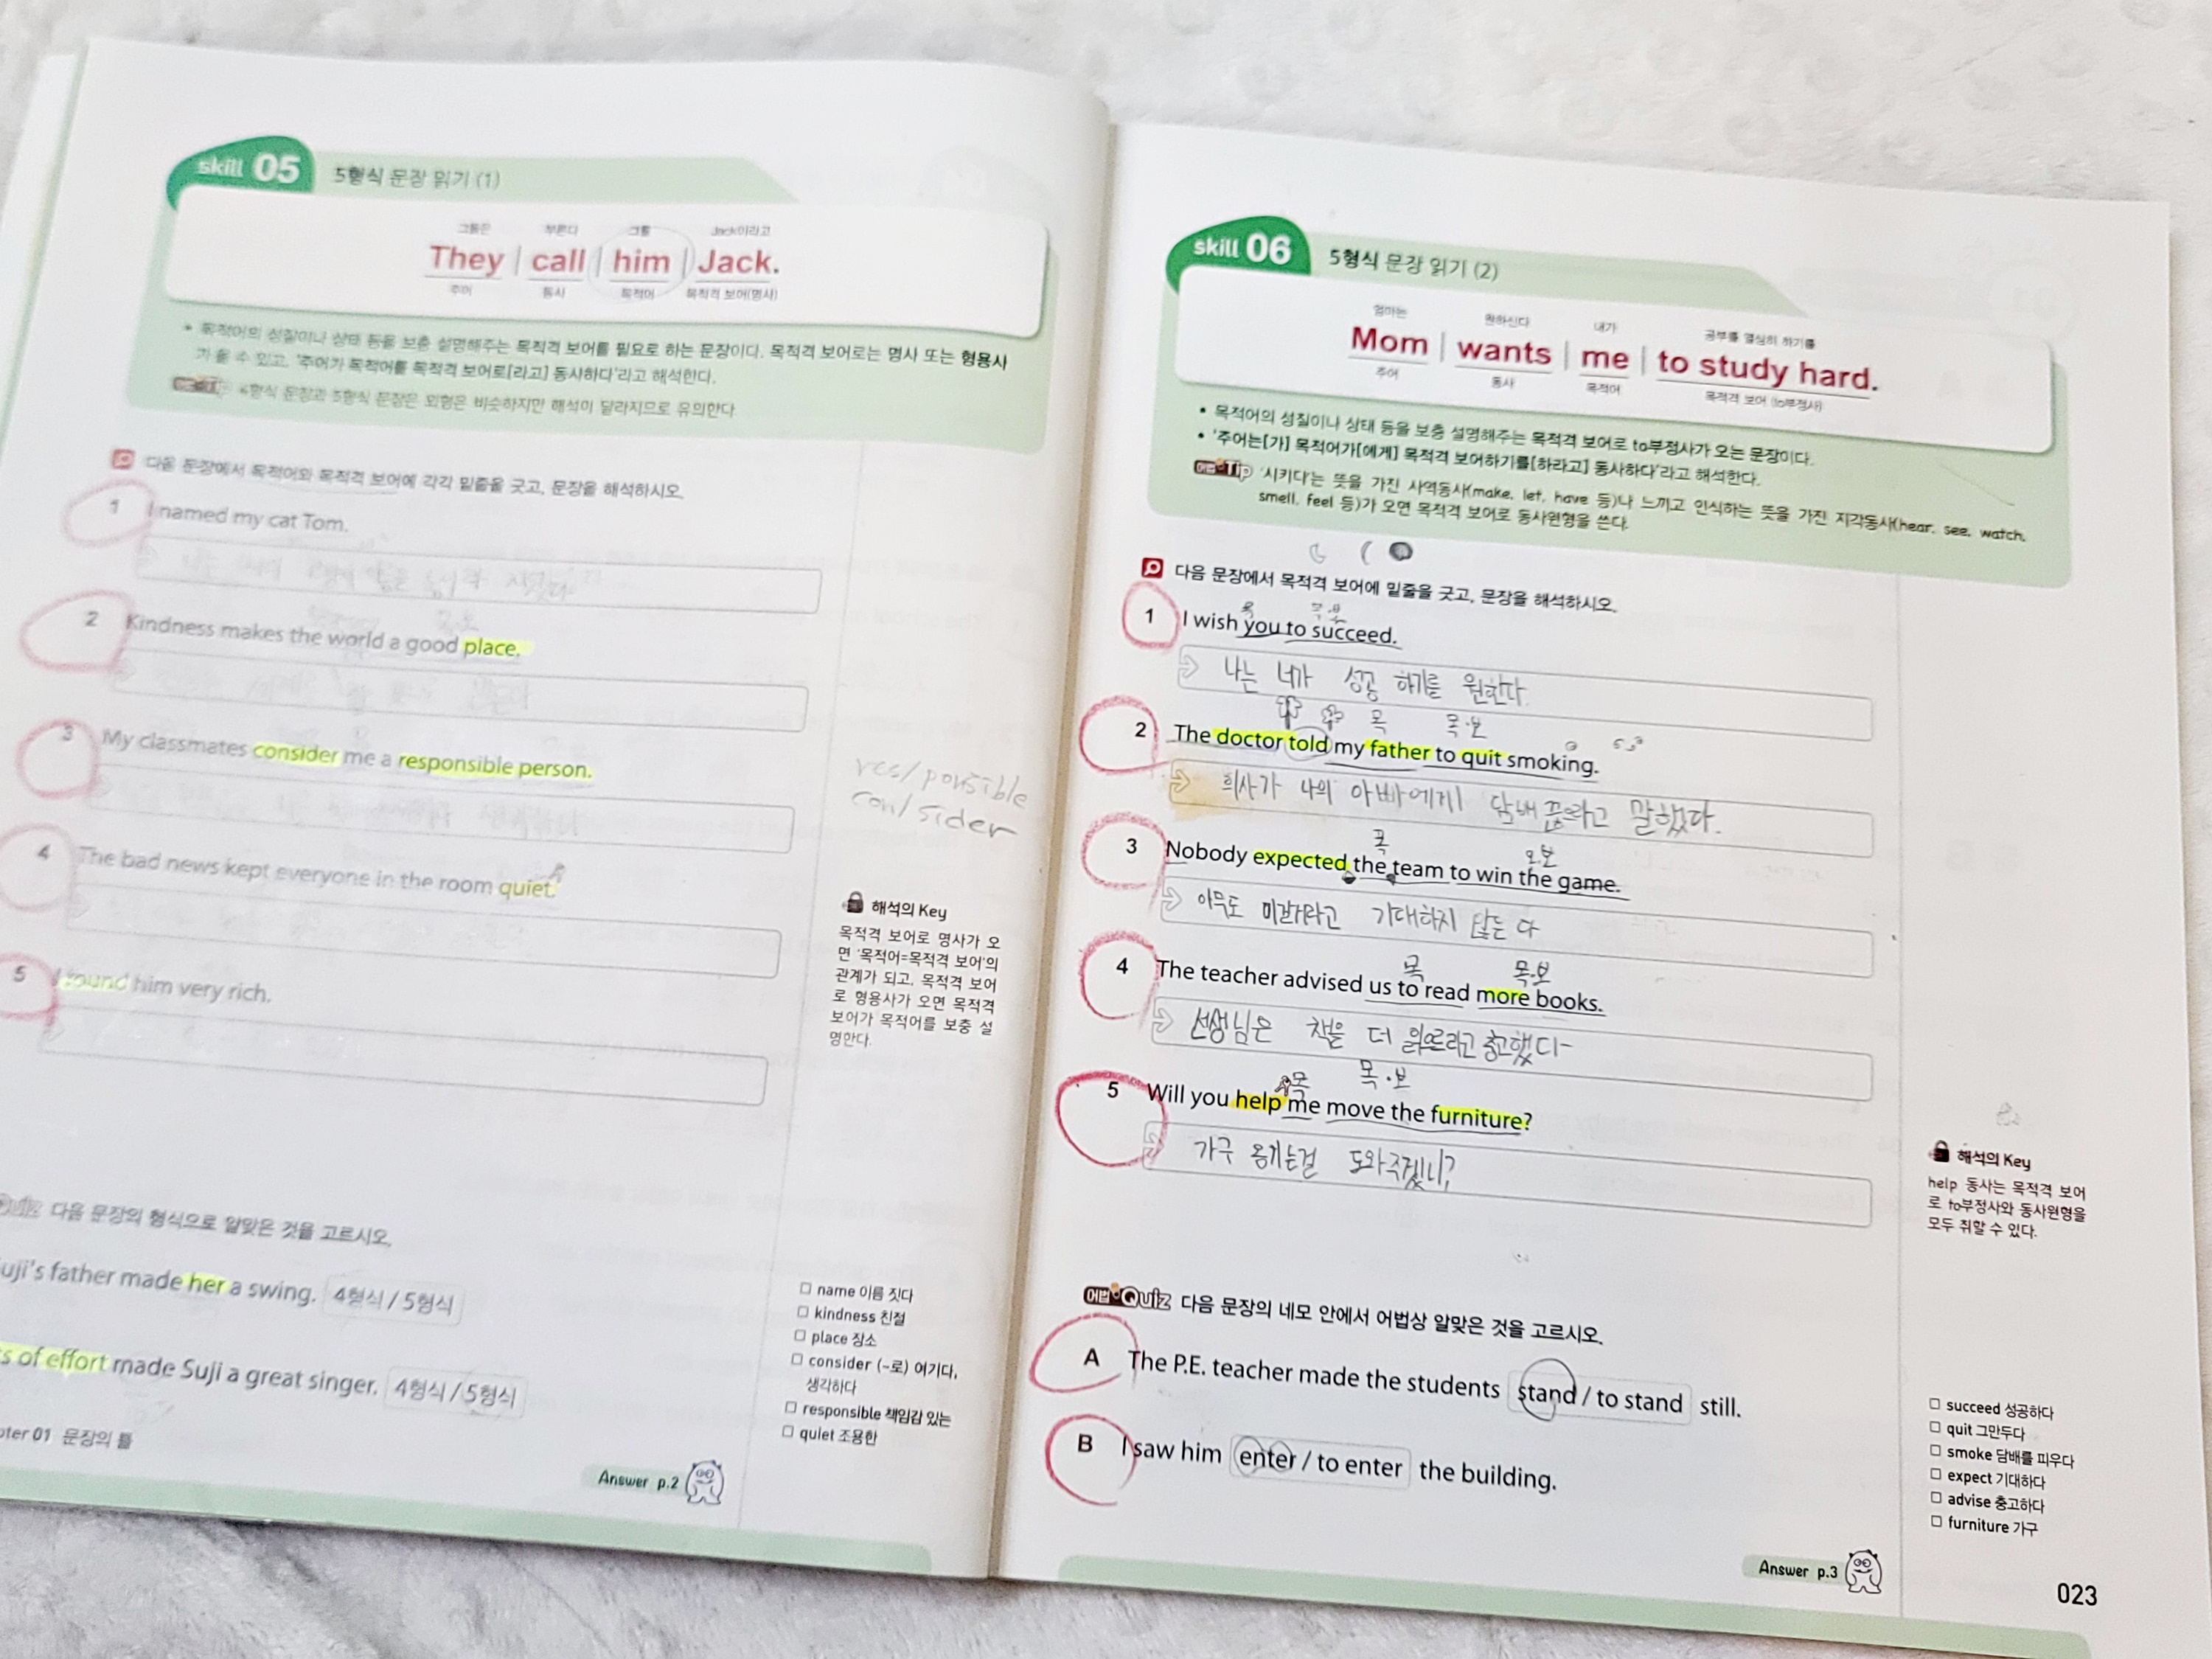 skill 05
5형식 문장 읽기 (1)
그들은 부른다 그를 Jack이라고
They | call | him | Jack.
주어 동사 목적어 목적격 보어(명사)
• 목적어의 성질이나 상태 등을 보충 설명해주는 목적격 보어를 필요로 하는 문장이다. 목적격 보어로는 명사 또는 형용사
가 올 수 있고, '주어가 목적어를 목적격 보어로[라고] 동사하다'라고 해석한다.
어법 Tip 4형식 문장과 5형식 문장은 외형은 비슷하지만 해석이 달라지므로 유의한다.
다음 문장에서 목적어와 목적격 보어에 각각 밑줄을 긋고, 문장을 해석하시오.
1 I named my cat Tom.
2 Kindness makes the world a good place.
3 My classmates consider me a responsible person.
res/ponsible
con/sider
4 The bad news kept everyone in the room quiet.
5 I found him very rich.
해석의 Key
목적격 보어로 명사가 오
면 '목적어=목적격 보어'의
관계가 되고, 목적격 보어
로 형용사가 오면 목적격
보어가 목적어를 보충 설
명한다.
Quiz 다음 문장의 형식으로 알맞은 것을 고르시오.
uji's father made her a swing. 4형식 / 5형식
s of effort made Suji a great singer. 4형식 / 5형식
name 이름 짓다
kindness 친절
place 장소
consider (~로) 여기다,
생각하다
responsible 책임감 있는
quiet 조용한
pter 01 문장의 틀
Answer p.2
skill 06
5형식 문장 읽기 (2)
엄마는 원하신다 내가 공부를 열심히 하기를
Mom | wants | me | to study hard.
주어 동사 목적어 목적격 보어 (to부정사)
• 목적어의 성질이나 상태 등을 보충 설명해주는 목적격 보어로 to부정사가 오는 문장이다.
• '주어는[가] 목적어가[에게] 목적격 보어하기를[하라고] 동사하다'라고 해석한다.
어법 Tip '시키다'는 뜻을 가진 사역동사(make, let, have 등)나 느끼고 인식하는 뜻을 가진 지각동사(hear, see, watch,
smell, feel 등)가 오면 목적격 보어로 동사원형을 쓴다.
다음 문장에서 목적격 보어에 밑줄을 긋고, 문장을 해석하시오.
목 목·보
1 I wish you to succeed.
나는 네가 성공 하기를 원한다.
목 목·보
2 The doctor told my father to quit smoking.
의사가 나의 아빠에게 담배 끊으라고 말했다.
목
3 Nobody expected the team to win the game.
아무도 기대하지 않는다
목 목·보
4 The teacher advised us to read more books.
선생님은 책을 더 읽으라고 충고했다
목 목·보
5 Will you help me move the furniture?
가구 옮기는걸 도와주겠니?
해석의 Key
help 동사는 목적격 보어
로 to부정사와 동사원형을
모두 취할 수 있다.
어법 Quiz 다음 문장의 네모 안에서 어법상 알맞은 것을 고르시오.
A The P.E. teacher made the students stand / to stand still.
B I saw him enter / to enter the building.
succeed 성공하다
quit 그만두다
smoke 담배를 피우다
expect 기대하다
advise 충고하다
furniture 가구
Answer p.3
023